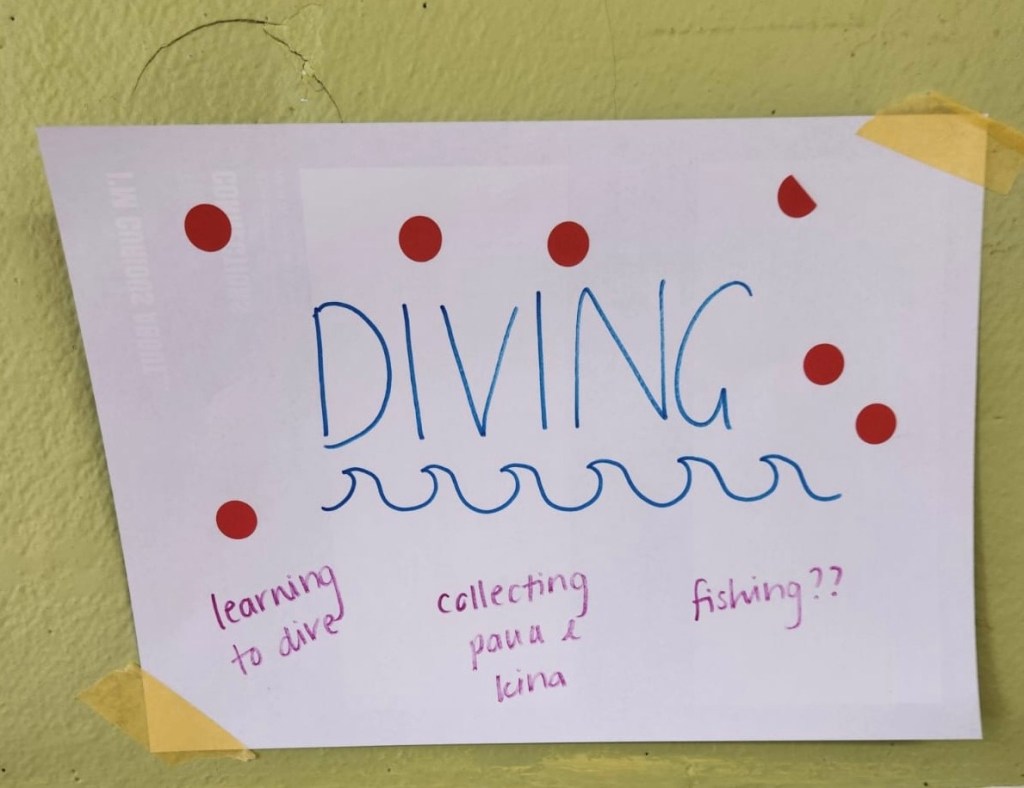 DIVING
learning
to dive
collecting
paua &
kina
fishing??